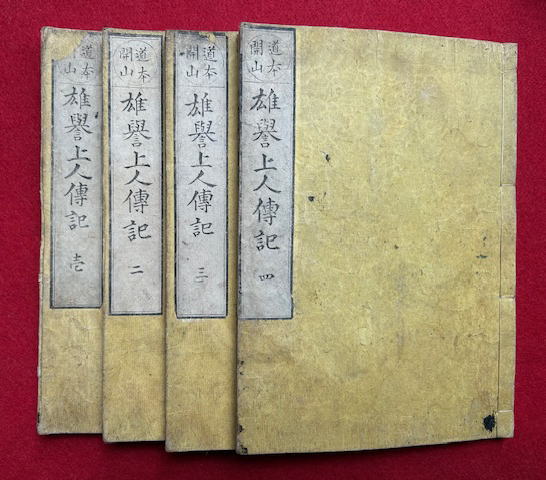 道本
開山
雄譽上人傳記 壱
道本
開山
雄譽上人傳記 二
道本
開山
雄譽上人傳記 三
道本
開山
雄譽上人傳記 四